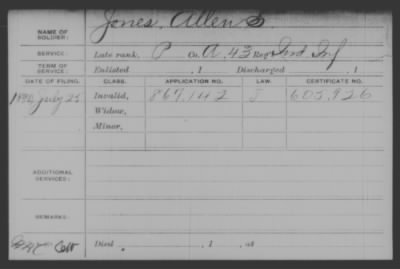 NAME OF SOLDIER: Jones, Allen S.
SERVICE: Late rank, P Co. A, 43 Reg't Ind. Inf
TERM OF SERVICE: Enlisted , 1 Discharged , 1
DATE OF FILING. CLASS. APPLICATION NO. LAW. CERTIFICATE NO.
July 25 Invalid, 867,142 J 605,926
Widow,
Minor,
ADDITIONAL SERVICES:
REMARKS:
Died , 1 , at